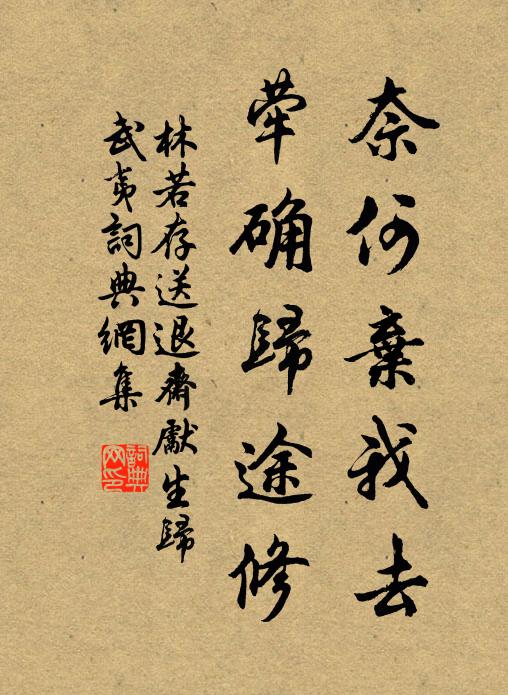 奈何棄我去
犖确歸途修
林若存送退齋獻生歸
武夷詞典網集
詞典网印